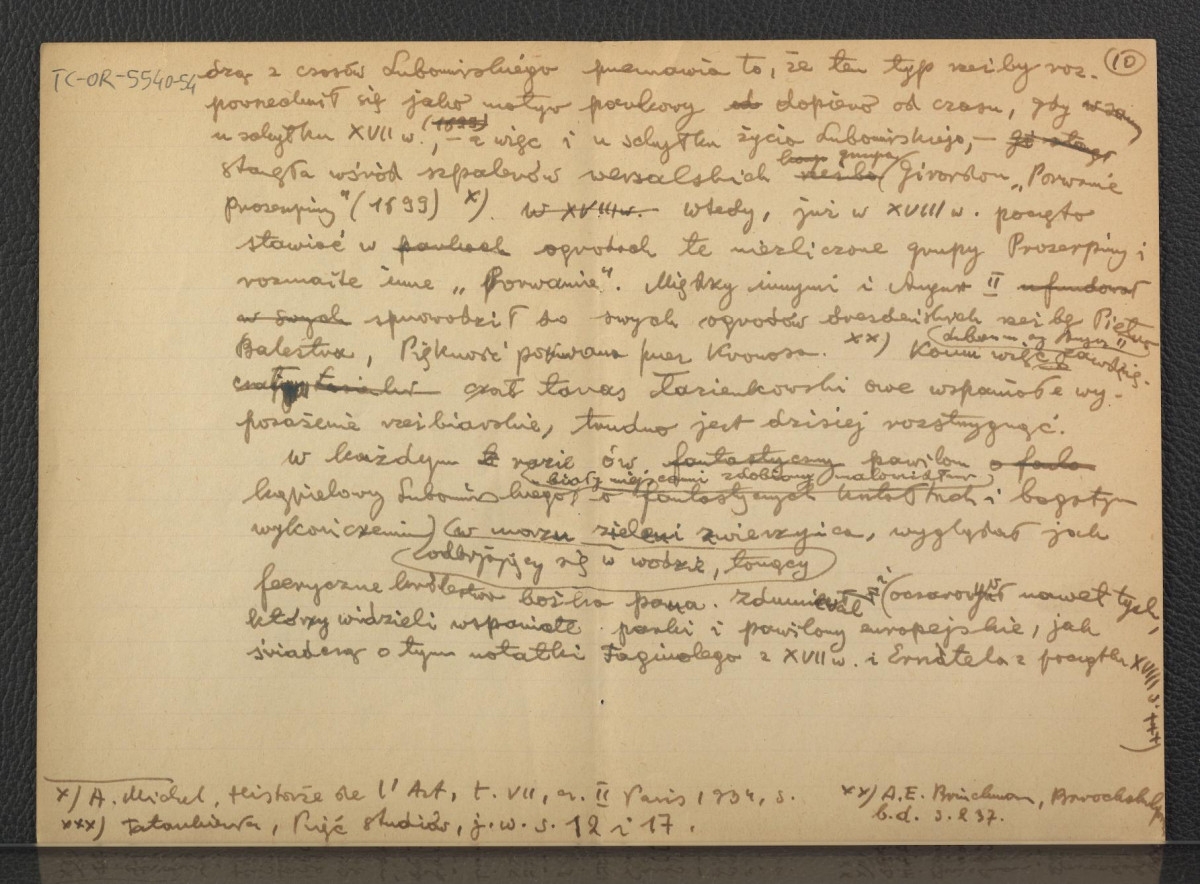 TC-OR-5540-54
10
dzą z czasów Lubomirskiego przemawia to, że ten typ rzeźby roz-
powszechnił się jako motyw parkowy od dopiero od czasu, gdy
u schyłku XVII w. (1699), – a więc i u schyłku życia Lubomirskiego, –
stanęła wśród szpalerów wersalskich rzeźba grupa Girardon „Porwanie
Prozerpiny" (1699) x). w XVIII w. Wtedy, już w XVIII w. poczęto
stawiać w parkach ogrodach te niezliczone grupy Prozerpiny i
rozmaite inne „Porwanie". Między innymi i August II ufundował
w swych sprowadził do swych ogrodów drezdeńskich rzeźbę Piotra
Balestra, Piękność porwana przez Kronosa. xx) Komu więc zawdzię-
czał taras Łazienkowski owe wspaniałe wy-
posażenie rzeźbiarskie, trudno jest dzisiaj rozstrzygnąć.
W każdym razie ów fantastyczny pawilon
biały miejscami zdobiony malowidłem
kąpielowy Lubomirskiego, o fantastycznych kształtach i bogatym
wykończeniu) (w morzu zieleni zwierzyńca, wyglądał jak
odbijający się w wodzie, tonący
feeryczne królestwo bożka pana. Zdumiewał i oczarowywał nawet tych,
którzy widzieli wspaniałe parki i pawilony europejskie, jak
świadczą o tym notatki Faginolego z XVII w. i Erndtela z początku XVIII w. xxx)
x) A. Michel, Histoire de l'Art, t. VII, cz. II Paris 1934, s.
xx) A.E. Brinckman,
b.d. s. 237.
xxx) Tatarkiewicz, Pięć studiów, j.w. s. 12 i 17.